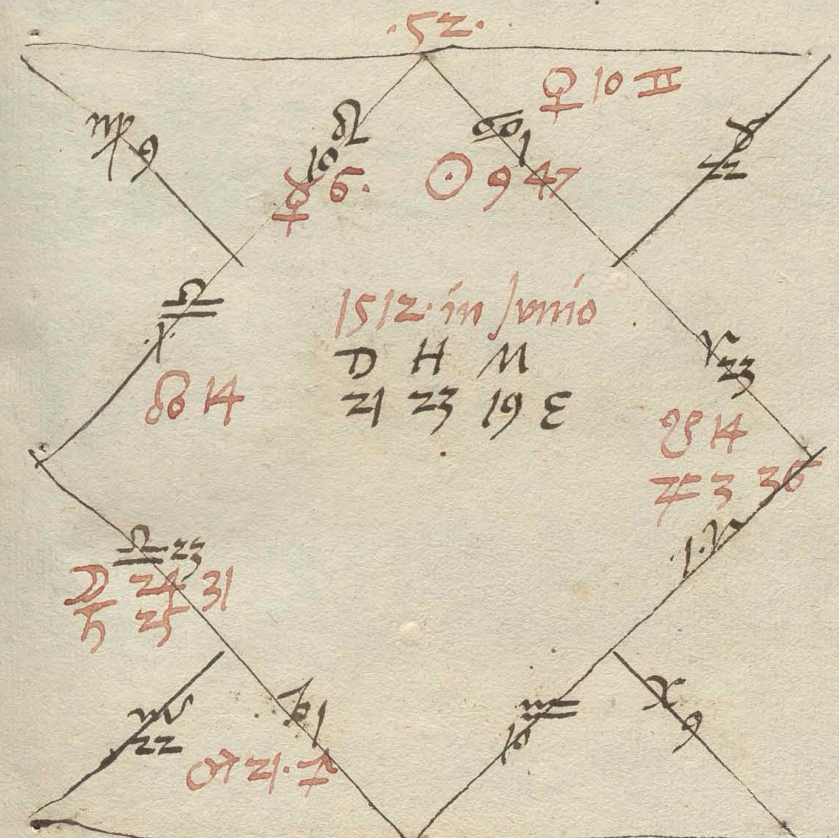 .52.
♀ 10 ♊
♍ 6
♌
☿ 6.
♋ 1
☉ 9 47
♉ 22
♎ 1
☊ 14
1512. in Junio
D H M
21 23 19 E
♈ 23
☋ 14
♃ 3 36
♈ 1
♎ 23
☽ 24 31
♄ 25
♏ 22
♑ 1
♂ 21. ♐
♒
♓ 6